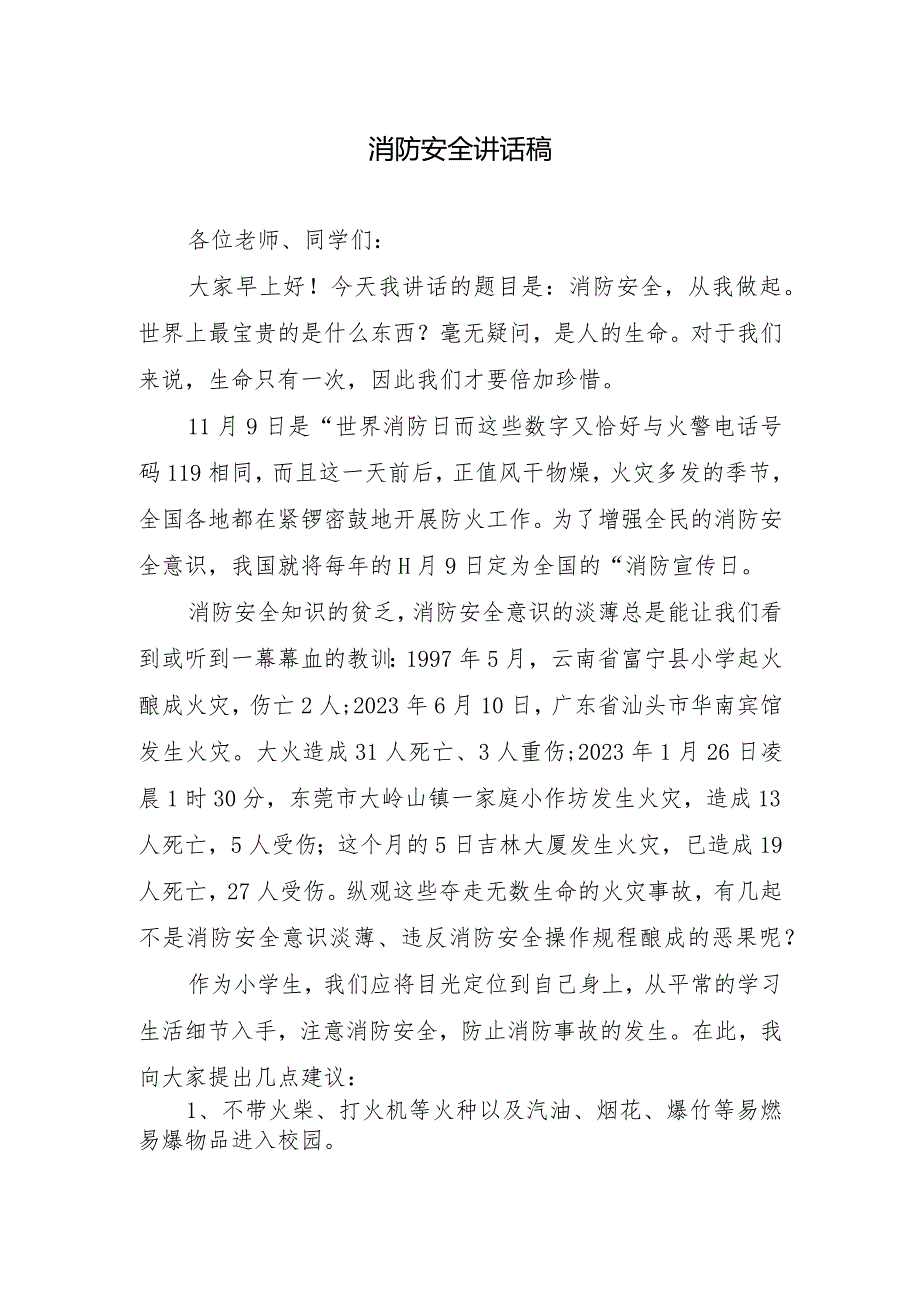 消防安全讲话稿
各位老师、同学们：
大家早上好！今天我讲话的题目是：消防安全，从我做起。
世界上最宝贵的是什么东西？毫无疑问，是人的生命。对于我们
来说，生命只有一次，因此我们才要倍加珍惜。
11月9日是“世界消防日而这些数字又恰好与火警电话号
码119相同，而且这一天前后，正值风干物燥，火灾多发的季节，
全国各地都在紧锣密鼓地开展防火工作。为了增强全民的消防安
全意识，我国就将每年的H月9日定为全国的“消防宣传日。
消防安全知识的贫乏，消防安全意识的淡薄总是能让我们看
到或听到一幕幕血的教训：1997年5月，云南省富宁县小学起火
酿成火灾，伤亡2人;2023年6月10日，广东省汕头市华南宾馆
发生火灾。大火造成31人死亡、3人重伤;2023年1月26日凌
晨1时30分，东莞市大岭山镇一家庭小作坊发生火灾，造成13
人死亡，5人受伤；这个月的5日吉林大厦发生火灾，已造成19
人死亡，27人受伤。纵观这些夺走无数生命的火灾事故，有几起
不是消防安全意识淡薄、违反消防安全操作规程酿成的恶果呢？
作为小学生，我们应将目光定位到自己身上，从平常的学习
生活细节入手，注意消防安全，防止消防事故的发生。在此，我
向大家提出几点建议：
1、不带火柴、打火机等火种以及汽油、烟花、爆竹等易燃
易爆物品进入校园。